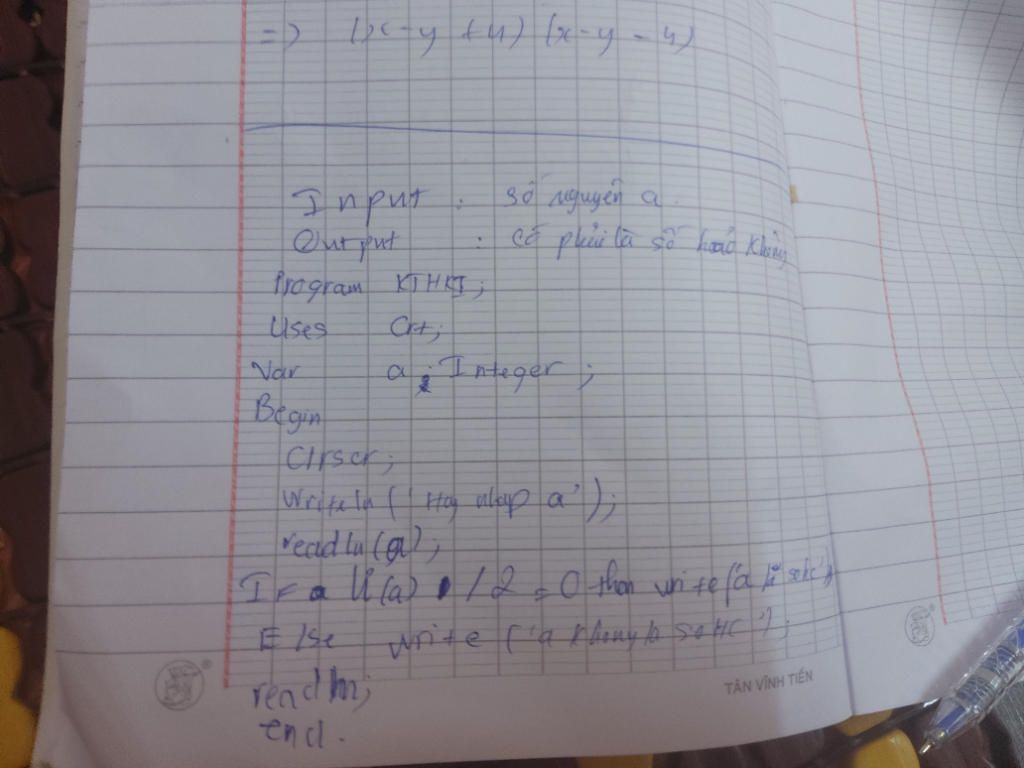 => (x-y+4) (x-y-4)
Input : số nguyên a.
Output : có phải là số hoàn không
Program KTHKI;
Uses Crt;
Var a: Integer;
Begin
Clrscr;
Writeln ('Hay nhap a');
readln(a);
If Ư(a) / 2 = 0 then write ('a là sohc')
Else write ('a khong là SoHC');
readln;
end.
TÂN VĨNH TIẾN